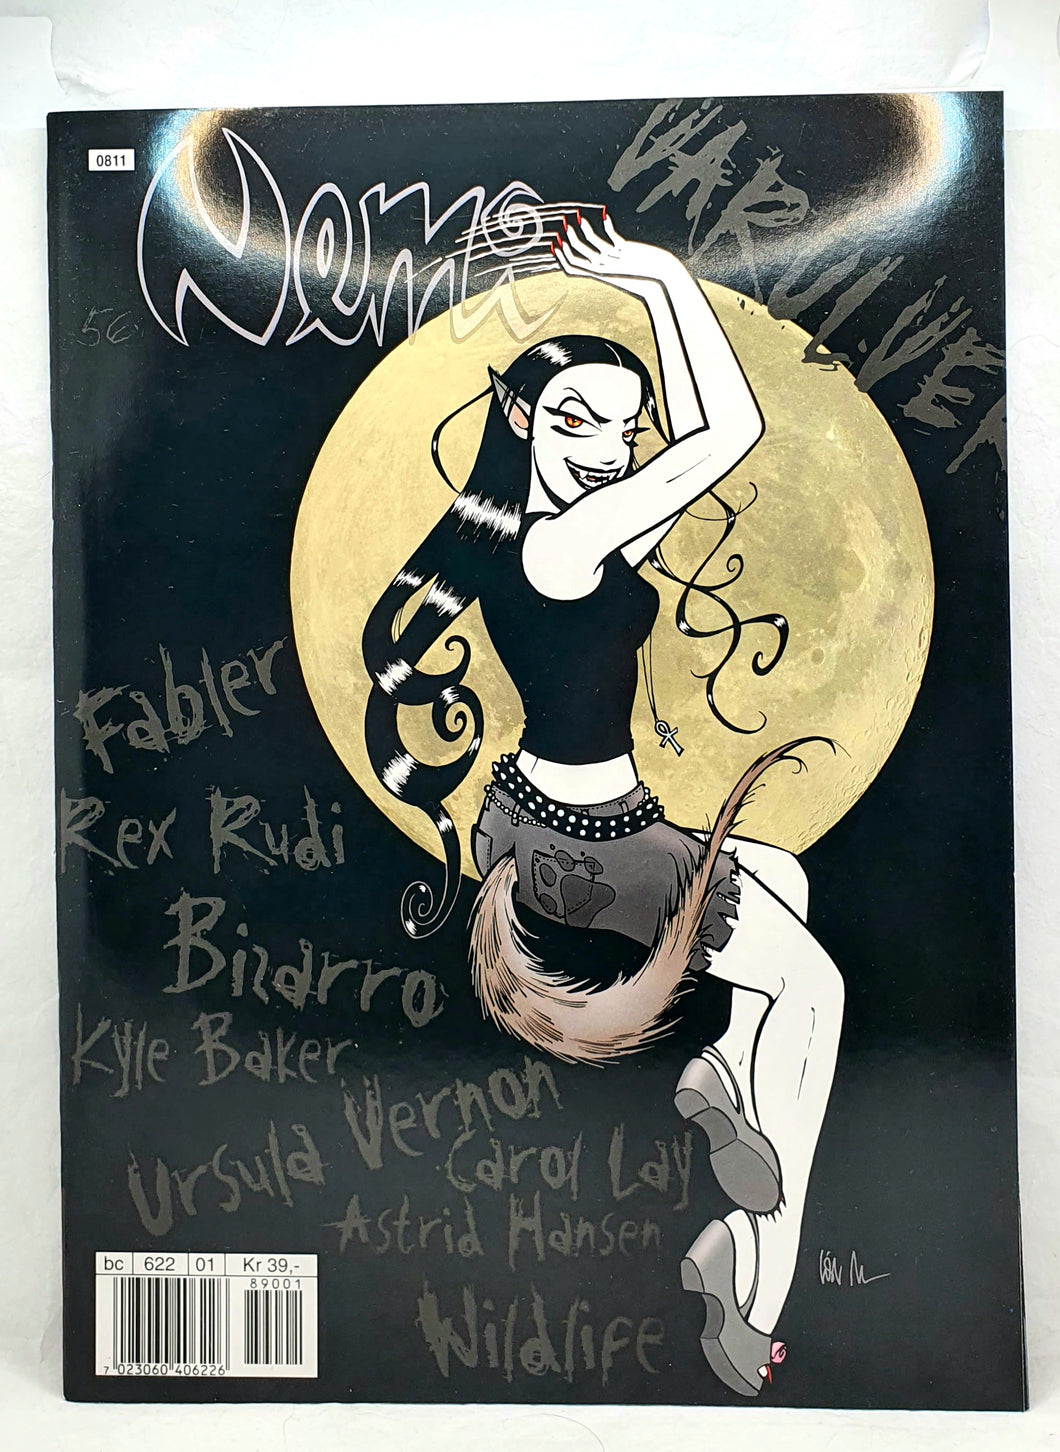 0811
Nemi
VARULVER
56
Fabler
Rex Rudi
Bizarro
Kyle Baker
Ursula Vernon
Carol Lay
Astrid Hansen
Wildlife
bc 622 01 Kr 39,-
89001
7 023060 406226